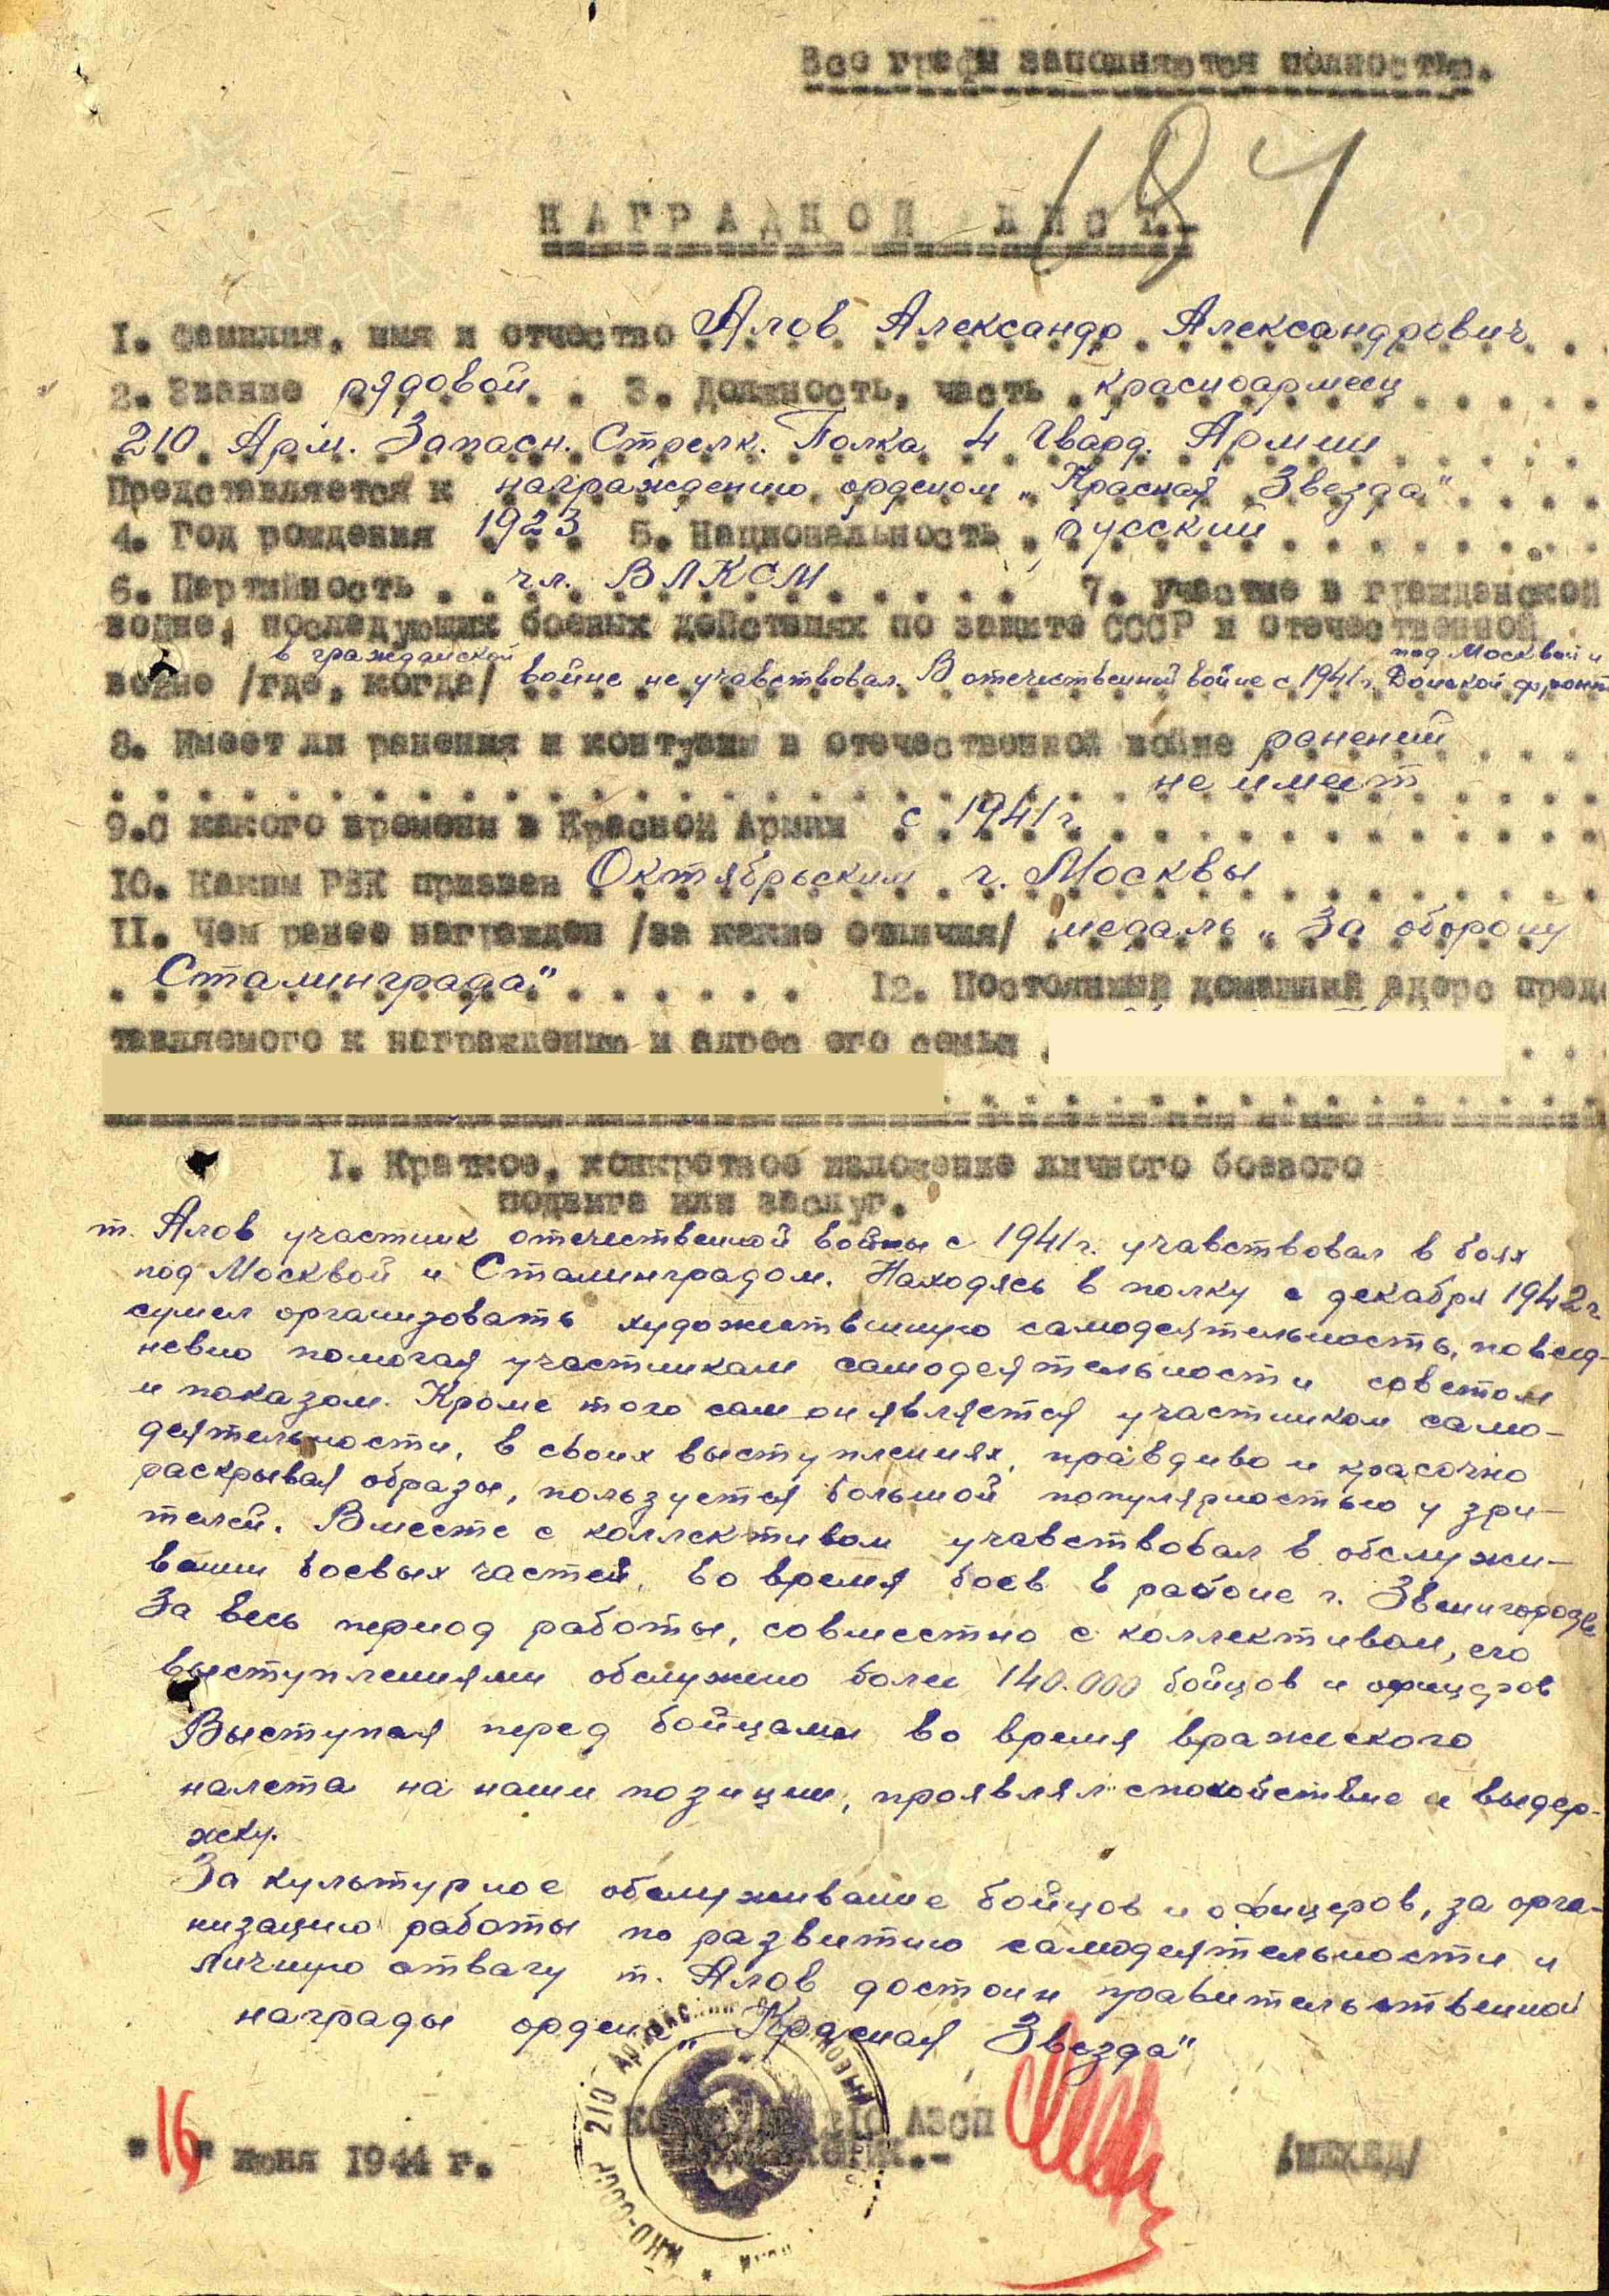 Все графы заполняются полностью.
184
НАГРАДНОЙ ЛИСТ.-
1. Фамилия, имя и отчество Алов Александр Александрович
2. Звание рядовой 3. Должность, часть красноармеец
210 Арм. Запасн. Стрелк. Полка 4 Гвард. Армии
Представляется к награждению орденом „Красная Звезда"
4. Год рождения 1923 5. Национальность русский
6. Партийность чл. ВЛКСМ 7. участие в гражданской
войне, последующих боевых действиях по защите СССР и отечественной
в гражданской под Москвой и
войне /где, когда/ войне не учавствовал. В отечественной войне с 1941 г. Донской фронт
8. Имеет ли ранения и контузии в отечественной войне ранений
не имеет
9. С какого времени в Красной Армии с 1941 г.
10. Каким РВК призван Октябрьским г. Москвы
11. Чем ранее награжден /за какие отличия/ медаль „За оборону
Сталинграда" 12. Постоянный домашний адрес предс
тавляемого к награждению и адрес его семьи
I. Краткое, конкретное изложение личного боевого
подвига или заслуг.
т. Алов участник отечественной войны с 1941 г. учавствовал в боях
под Москвой и Сталинградом. Находясь в полку с декабря 1942 г.
сумел организовать художественную самодеятельность, повсед-
невно помогая участникам самодеятельности советом
и показом. Кроме того сам он является участником само-
деятельности, в своих выступлениях, правдиво и красочно
раскрывая образы, пользуется большой популярностью у зри-
телей. Вместе с коллективом учавствовал в обслужи-
вании боевых частей, во время боев в районе г. Звенигородка
За весь период работы, совместно с коллективом, его
выступлениями обслужено более 140.000 бойцов и офицеров
Выступая перед бойцами во время вражеского
налета на наши позиции, проявлял спокойствие и выдер-
жку.
За культурное обслуживание бойцов и офицеров, за орга-
низацию работы по развитию самодеятельности и
личную отвагу т. Алов достоин правительственной
награды ордена „Красная Звезда"
КОМАНДИР 210 АЗСП
"16" июня 1944 г. /ШЕХЕД/
НКО-СССР 210